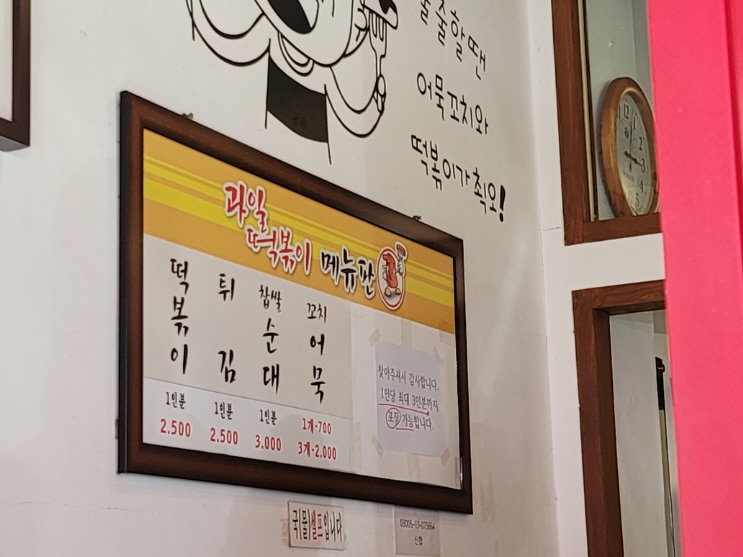 출출할땐
어묵꼬치와
떡볶이가 최오!
과일
떡볶이 메뉴판
떡볶이
1인분
2.500
튀김
1인분
2.500
찹쌀
순대
1인분
3.000
꼬치
어묵
1개-700
3개-2.000
찾아주셔서 감사합니다.
1인당 최대 3인분까지
포장 가능합니다.
국물셀프입니다
03005-13-075664
신협